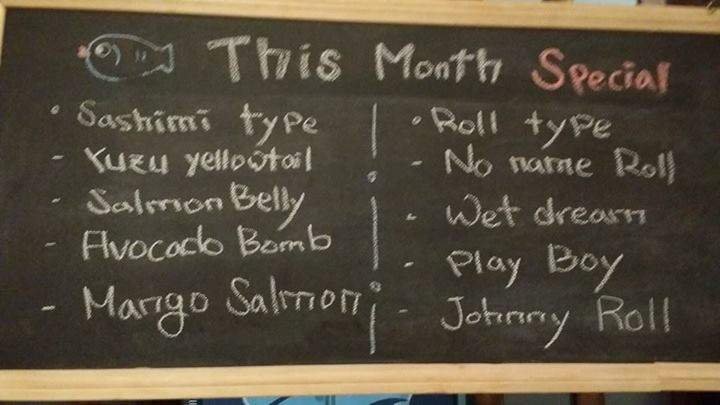 This Month Special
• Sashimi type
- Yuzu yellowtail
- Salmon Belly
- Avocado Bomb
- Mango Salmon
• Roll type
- No name Roll
- Wet dream
- Play Boy
- Johnny Roll